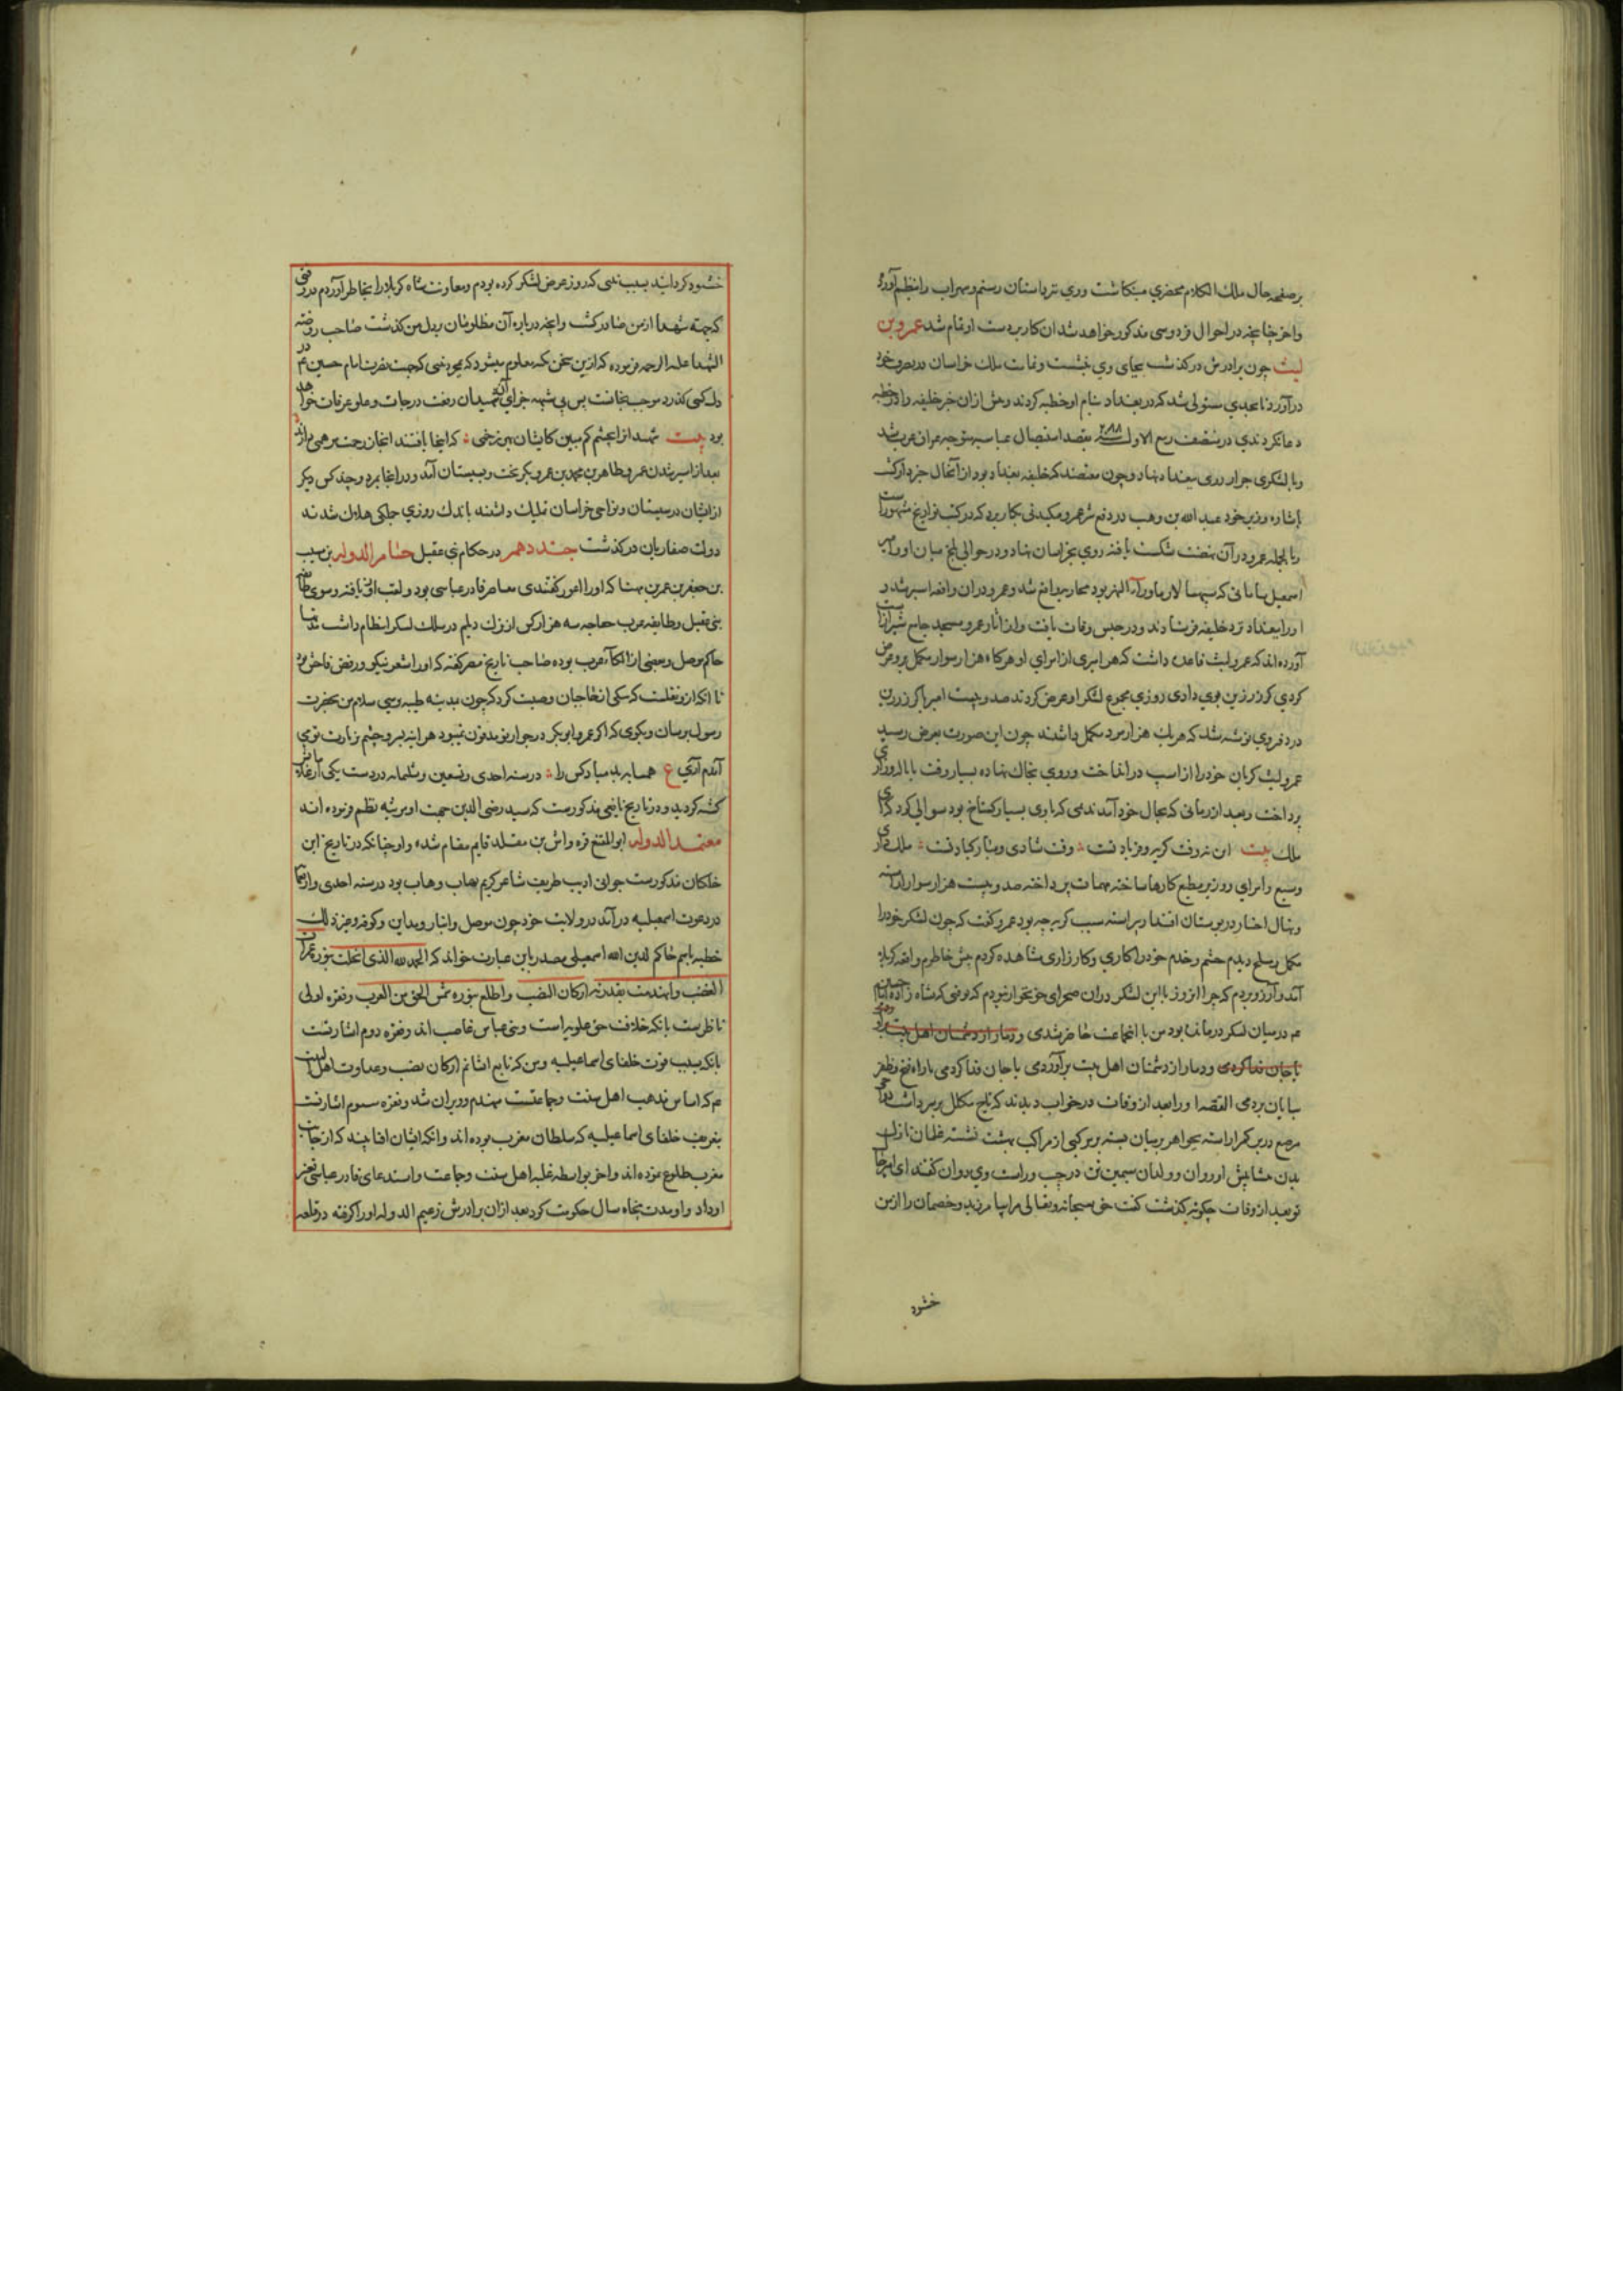 بر صفحه حال ملک الکلام محضری مینکاشت ووی نیز داستان رستم و سهراب را نظم آورد
واخر چنانچه در احوال فردوسی مذکور خواهد شد ان کار بر دست او تمام شد عمرو بن
لیث چون برادرش درکذشت بجای وی بنشست وتمامت ملک خراسان در تصرف خود
درآورد تا بحدی مستولی شد که در بغداد بنام او خطبه کردند وپیش ازان جز خلیفه را در خطبه
دعا نکردندی در منتصف ربیع الاول ۲۸۸ بقصد استیصال عباسیه متوجه عراق عرب شد
وبا لشکری جرار روی ببغداد نهاد وچون معتضد که خلیفه بغداد بود از آنحال خبردار کشت
باشاره وزیر خود عبید الله بن وهب در دفع شر عمرو مکیدتی بکار برد که در کتب تواریخ مشهور است
وبالجمله عمرو در آن نهضت شکست یافته روی بخراسان نهاد ودر حوالی بلخ میان او وامیر
اسمعیل سامانی که سپهسالار ماوراء النهر بود محاربه واقع شد وعمرو دران واقعه اسیر شد و
اورا ببغداد نزد خلیفه فرستادند ودر حبس وفات یافت واز اثار عمرو مسجد جامع شیراز است
آورده اند که عمرو لیث قاعده داشت که هر امیری از امرای او هرکاه هزار سوار مکمل برو عرض
کردی کرز زرین بوی دادی روزی مجموع لشکر او عرض کردند صد وبیست امیر با کرز زرین
در دفتر وی نوشته شد که هر یک هزار مرد مکمل داشتند چون این صورت بعرض رسید
عمرو لیث کریان خود را از اسپ درانداخت وروی بخاک نهاده بسیار وقت با ناله وزاری
پرداخت وبعد از زمانی که بحال خود آمد ندیمی که با وی بسیار کستاخ بود سوالی کرد که ای
ملک بیت این نه وقت کریه وفریاد تست وقت شادی ومبارکباد تست ملک داری
وسیع وامرای روزبر مطیع کارها ساخته مهمات پرداخته صد وبیست هزار سوار اراسته
ونهال اختیار در بوستان اقتدار پیراسته سبب کریه چه بود عمرو کفت که چون لشکر خود را
مکمل ومسلح دیدم وحشم وخدم خود را کاری وکارزاری مشاهده کردم پیش خاطرم واقعه کربلا
آمد وآرزو بردم که چرا انروز با این لشکر دران صحرای خونخوار نبودم که وقتی که شاه زاده امام حسین
عم درمیان لشکر درمانده بود من با انجماعت حاضر شدی ودمار از دشمنان اهل بیت برآوردمی
یا جان فدا کردمی ودمار از دشمنان اهل بیت برآوردمی یا جان فدا کردمی یا راه فتح وظفر
بپایان بردمی القصه اورا بعد از وفات در خواب دیدند که تاج مکلل بر سر داشت
مرصع در بر کمر اراسته بجواهر بر میان بسته وبر مرکبی از مراکب بهشت نشسته غلمان نازک
بدن در پیش او روان وولدان سیمین تن در چپ وراست وی دوان کفتند ای امیر حال
تو بعد از وفات چکونه کذشت کفت حق سبحانه وتعالی مرا بیامرزید وخصمان را از من
خشنود
خشنود کردانید بسبب نیتی که روز عرض لشکر کرده بودم ومعاونت شاه کربلا را بخاطر آوردم ورقتی
که جهة شهدا از من صادر کشت وانچه درباره آن مظلومان بدل من کذشت صاحب روضة
الشهدا علیه الرحمه فرموده که ازین سخن کسی معلوم میشود که بمجرد نیتی که جهت نصرت امام حسین عم در
دل کسی کذرد موجب نجاتست پس بی شبهه جزای آن شهیدان رفعت درجات وعلو غرفات خواهد
بود بیت شهید از اچشم کم مبین کایشان بهر زخمی که اینجا یافتند انجا ز رحمت مرهمی دارند
بعد از اسیر شدن عمرو طاهر بن محمد بن عمرو بکریخت وبسیستان آمد ودر انجا بمرد وچند کس دیکر
از ایشان در سیستان ونواحی خراسان تملیک داشتند باندک روزی جملکی هلاک شدند
دولت صفاریان درکذشت جند دهم در حکام بنی عقیل حسام الدوله بن مسیب
بن جعفر بن عمرو بن مهنا که اورا اعور کفتندی معاصر قادر عباسی بود ولقب ازو یافته وسوی
بنی عقیل وطایفه عرب خفاجه سه هزار کس از ترک ودیلم در سلک لشکر انتظام داشت
حاکم موصل وبعضی از انحاء عرب بوده صاحب تاریخ مصر کفته که اورا شعر نیکو ورفض فاحش بود
تا انکه ازو نقلست که بیکی از حاجیان وصیت کرد که چون بمدینه طیبه رسی سلام من بحضرت
رسول برسان وبکوی که اکر عمر وابوبکر در جوار تو مدفون نمیبود هر اینه بسر وچشم زیارت توی
آمدم آمدی ع همسایه بد مباد کس را در سنه احدی وتسعین وثلثمایه در دست یکی از غلامانش
کشته کردید ودر تاریخ یافعی مذکورست که سید رضی الدین جهت او مرثیه نظم فرموده اند
معتمد الدوله ابو المنیع قرواش بن مقلد قایم مقام شد واو چنانکه در تاریخ ابن
خلکان مذکورست جوانی ادیب ظریف شاعر کریم نهاب وهاب بود در سنه احدی واربعمایه
در دعوت اسمعیلیه درآمد در ولایت خود چون موصل وانبار ومداین وکوفه وغیر ذلک
خطبه باسم حاکم لدین الله اسمعیلی مصدر باین عبارت خواند که الحمد لله الذی انجلت بنوره غمرات
الغضب وانهدمت بقدرته ارکان النصب واطلع بنوره شمس الحق من الغرب وفقره اولی
ناظرست بانکه خلافت حق علویه است وبنی عباس غاصب اند وفقره دوم اشارتست
بانکه بسبب قوت خلفای اسماعیلیه ومن که تابع ایشانم ارکان نصب وعداوت اهل بیت
عم که اساس مذهب اهل سنت وجماعتست منهدم وویران شد وفقره سیوم اشارتست
بتعریف خلفای اسماعیلیه که سلطان مغرب بوده اند وانکه ایشان افتابیند که از جانب
مغرب طلوع نموده اند واخر بواسطه غلبه اهل سنت وجماعت واستدعای قادر عباسی تغیر
او داد واو مدت پنجاه سال حکومت کرد بعد ازان برادرش زعیم الدوله اورا کرفته در قلعه